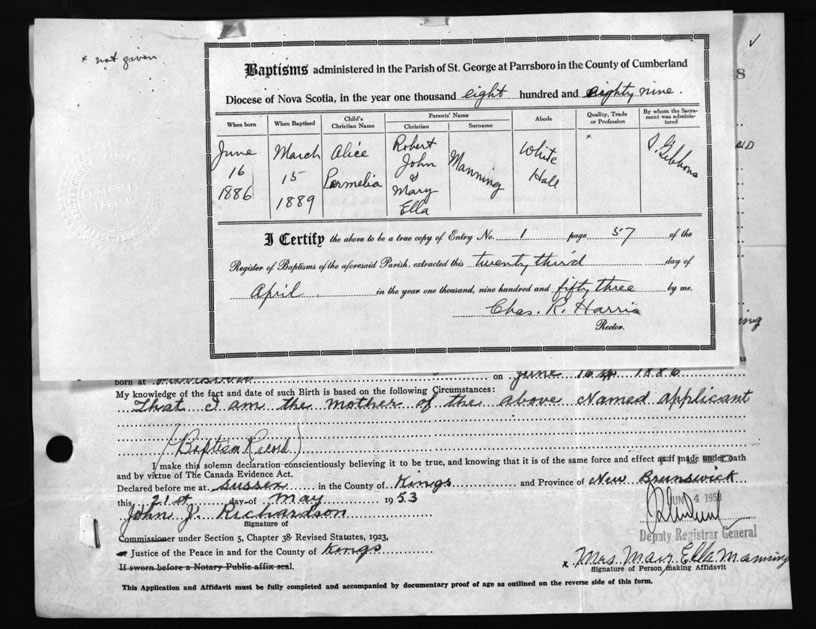 * not given
Baptisms administered in the Parish of St. George at Parrsboro in the County of Cumberland
Diocese of Nova Scotia, in the year one thousand eight hundred and eighty nine.
When born
When Baptised
Child's Christian Name
Parents' Name
Christian
Surname
Abode
Quality, Trade or Profession
By whom the Sacrament was administered
June 16 1886
March 15 1889
Alice Permelia
Robert John & Mary Ella
Manning
White Hall
*
S. Gibbons
I Certify the above to be a true copy of Entry No. 1 page 57 of the
Register of Baptisms of the aforesaid Parish, extracted this twenty third day of
April in the year one thousand, nine hundred and fifty three by me.
Chas. R. Harris
Rector.
born at on June 16 1886
My knowledge of the fact and date of such Birth is based on the following Circumstances:
That I am the mother of the above Named applicant
(Baptism Record)
I make this solemn declaration conscientiously believing it to be true, and knowing that it is of the same force and effect as if made under oath
and by virtue of The Canada Evidence Act.
Declared before me at Sussex in the County of Kings and Province of New Brunswick
this 21st day of May 1953
JUN 4 1953
John J. Richardson
Signature of
Deputy Registrar General
Commissioner under Section 5, Chapter 38 Revised Statutes, 1923,
or Justice of the Peace in and for the County of Kings
x Mrs Mary Ella Manning
If sworn before a Notary Public affix seal.
Signature of Person making Affidavit
This Application and Affidavit must be fully completed and accompanied by documentary proof of age as outlined on the reverse side of this form.